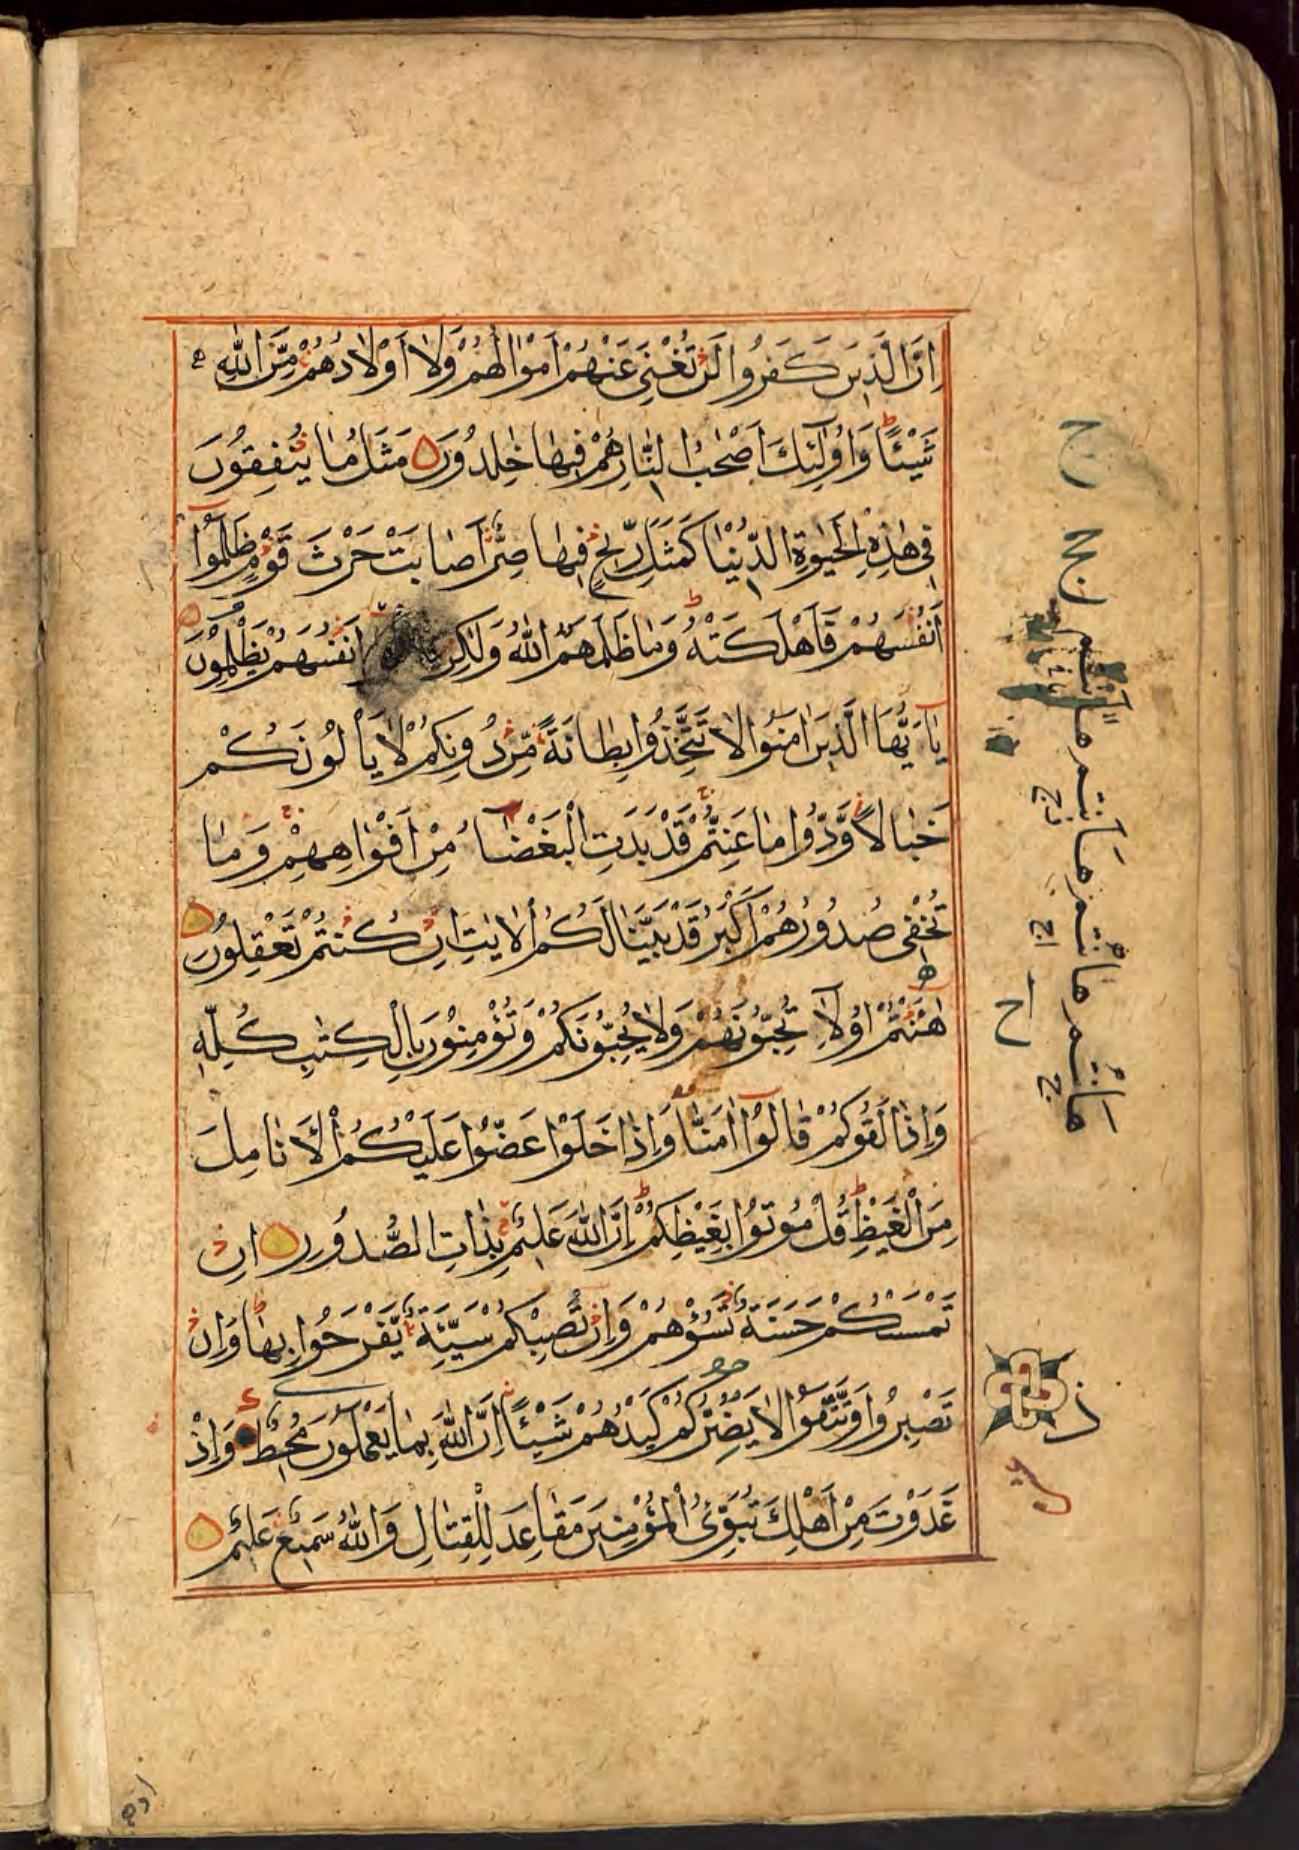 اِنَّ الَّذِيْنَ كَفَرُوا لَنْ تُغْنِيَ عَنْهُمْ اَمْوٰالُهُمْ وَلٰا اَوْلٰادُهُمْ مِّنَ اللّٰهِ
شَيْـئًا وَاُولٰٓئِكَ اَصْحٰبُ النَّارِ هُمْ فِيهٰا خٰلِدُوْنَ مَثَلُ مٰا يُنْفِقُوْنَ
فِي هٰذِهِ الْحَيٰوةِ الدُّنْيٰا كَمَثَلِ رِيْحٍ فِيهٰا صِرٌّ اَصٰابَتْ حَرْثَ قَوْمٍ ظَلَمُوْٓا
اَنْفُسَهُمْ فَاَهْلَكَتْهُ وَمٰا ظَلَمَهُمُ اللّٰهُ وَلٰكِنْ اَنْفُسَهُمْ يَظْلِمُوْنَ
يٰٓاَيُّهَا الَّذِيْنَ اٰمَنُوا لٰا تَتَّخِذُوْا بِطٰانَةً مِّنْ دُوْنِكُمْ لٰا يَأْلُوْنَكُمْ
خَبٰالًا وَّدُّوْا مٰا عَنِتُّمْ قَدْ بَدَتِ الْبَغْضٰٓاءُ مِنْ اَفْوٰاهِهِمْ وَمٰا
تُخْفِي صُدُوْرُهُمْ اَكْبَرُ قَدْ بَيَّنّٰا لَكُمُ الْاٰيٰتِ اِنْ كُنْتُمْ تَعْقِلُوْنَ
هٰٓاَنْتُمْ اُولٰٓاءِ تُحِبُّوْنَهُمْ وَلٰا يُحِبُّوْنَكُمْ وَتُؤْمِنُوْنَ بِالْكِتٰبِ كُلِّهٖ
وَاِذٰا لَقُوْكُمْ قٰالُوْٓا اٰمَنّٰا وَاِذٰا خَلَوْا عَضُّوْا عَلَيْكُمُ الْاَنٰامِلَ
مِنَ الْغَيْظِ قُلْ مُوْتُوْا بِغَيْظِكُمْ اِنَّ اللّٰهَ عَلِيْمٌ بِذٰاتِ الصُّدُوْرِ اِنْ
تَمْسَسْكُمْ حَسَنَةٌ تَسُؤْهُمْ وَاِنْ تُصِبْكُمْ سَيِّئَةٌ يَّفْرَحُوْا بِهٰا وَاِنْ
تَصْبِرُوْا وَتَتَّقُوْا لٰا يَضُرُّكُمْ كَيْدُهُمْ شَيْـئًا اِنَّ اللّٰهَ بِمٰا يَعْمَلُوْنَ مُحِيْطٌ وَاِذْ
غَدَوْتَ مِنْ اَهْلِكَ تُبَوِّئُ الْمُؤْمِنِيْنَ مَقٰاعِدَ لِلْقِتٰالِ وَاللّٰهُ سَمِيْعٌ عَلِيْمٌ